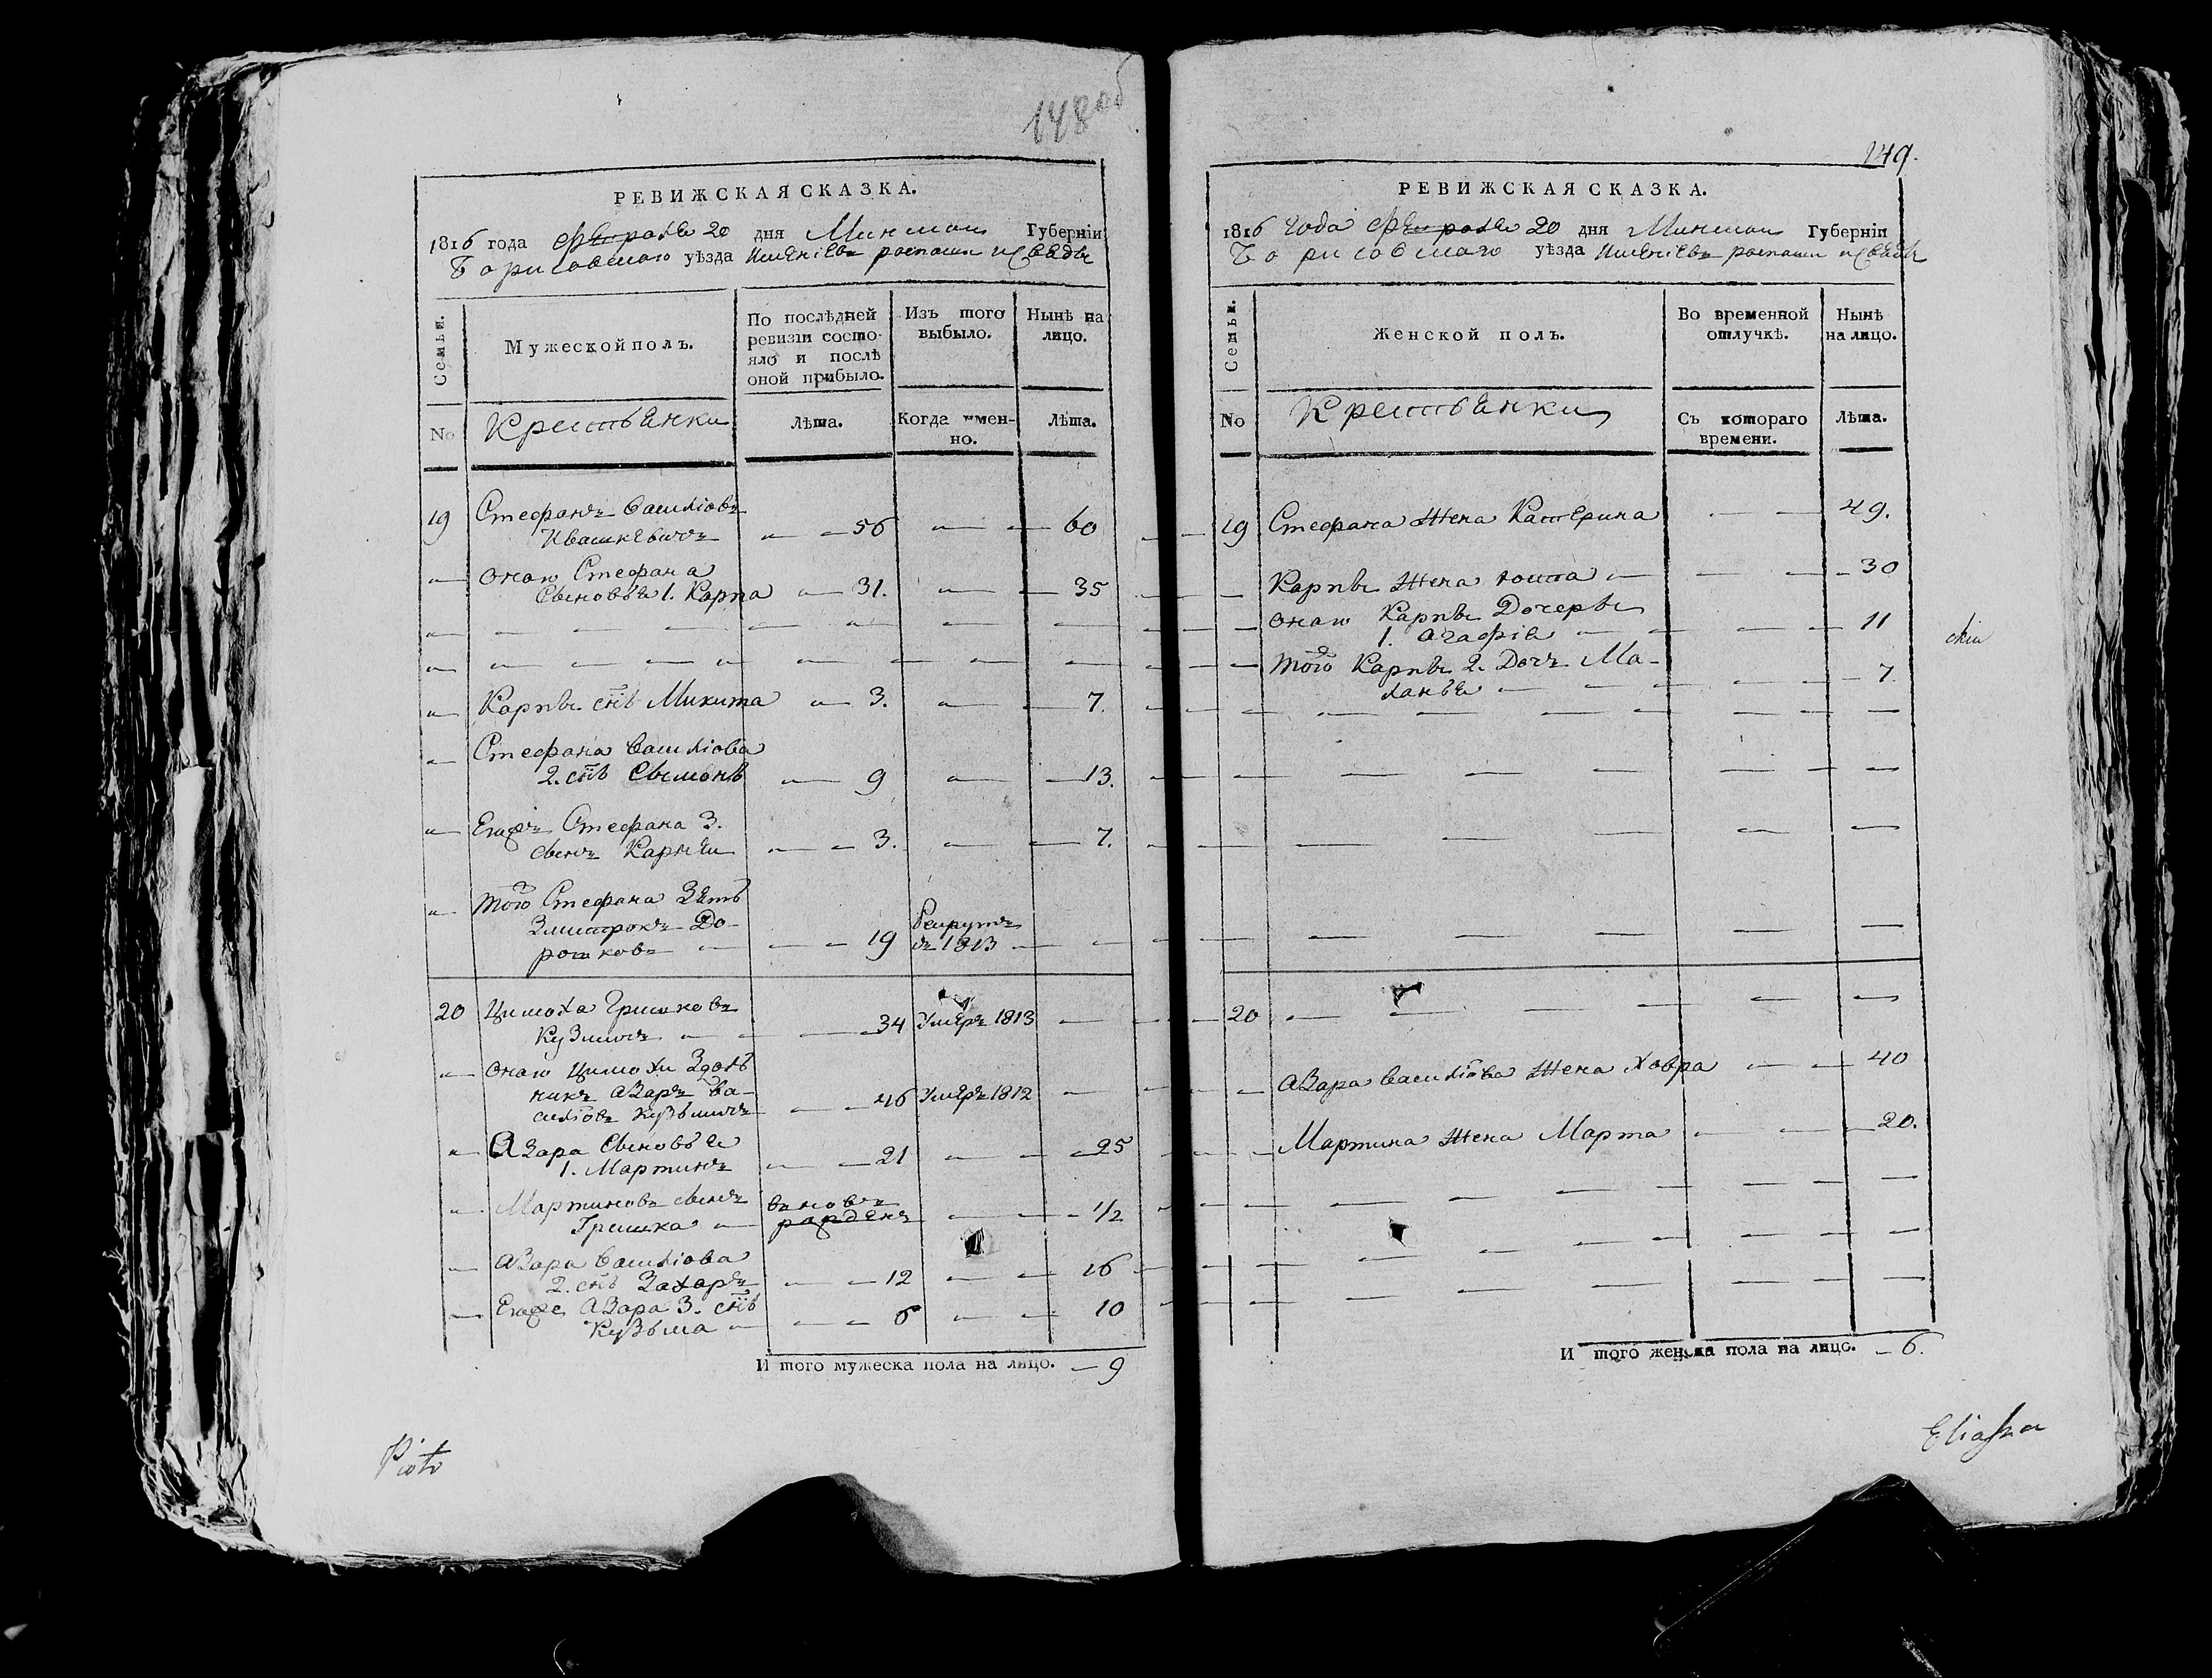 148об
РЕВИЖСКАЯ СКАЗКА.
1816 года февраля 20 дня Минской Губерніи
Борисовскаго уѣзда имѣніевъ
Семьи.
Мужеской полъ.
По послѣдней ревизіи состо-
яло и послѣ
оной прибыло.
Изъ того
выбыло.
Нынѣ на
лицо.
No
Крестьянки
Лѣта.
Когда имен-
но.
Лѣта.
19 Стефанъ Василіовъ
Ивашкевичъ 56 60
оного Стефана
сыновья 1. Карпа 31. 35
Карпы снъ Микита 3. 7.
Стефана Василіова
2. снъ Сымонъ 9 13.
Егожъ Стефана 3.
сынъ Карней 3. 7.
того Стефана Зять
Змитрокъ До-
рошковъ 19 Рекрутъ
въ 1813
20 Цимоха Гришковъ
Кузмичъ 34 Умеръ 1813
оного Цимохи Здоль
никъ Азаръ Ва-
силіовъ Кузьмичъ 46 Умеръ 1812
Азара Сыновья
1. Мартинъ 21 25
Мартиновъ сынъ
Гришка вновь
рожденъ 1/2
Азара Василіова
2. снъ Захаръ 12 16
Егоже Азара 3. снъ
Кузьма 6 10
И того мужеска пола на лицо. 9
Piotr
149.
РЕВИЖСКАЯ СКАЗКА.
1816 года февраля 20 дня Минской Губерніи
Борисовскаго уѣзда имѣніевъ
Семьи.
Женской полъ.
Во временной
отлучкѣ.
Нынѣ
на лицо.
No
Крестьянки
Съ котораго
времени.
Лѣта.
19 Стефана Жена Катерина 49.
Карпы Жена 30
оного Карпы Дочеры
1. Агафія 11
того Карпы 2. Дочъ Ма-
ланья 7
20
Азара Василіова Жена Ховра 40
Мартина Жена Марта 20.
И того женска пола на лицо. 6.
Eliasza